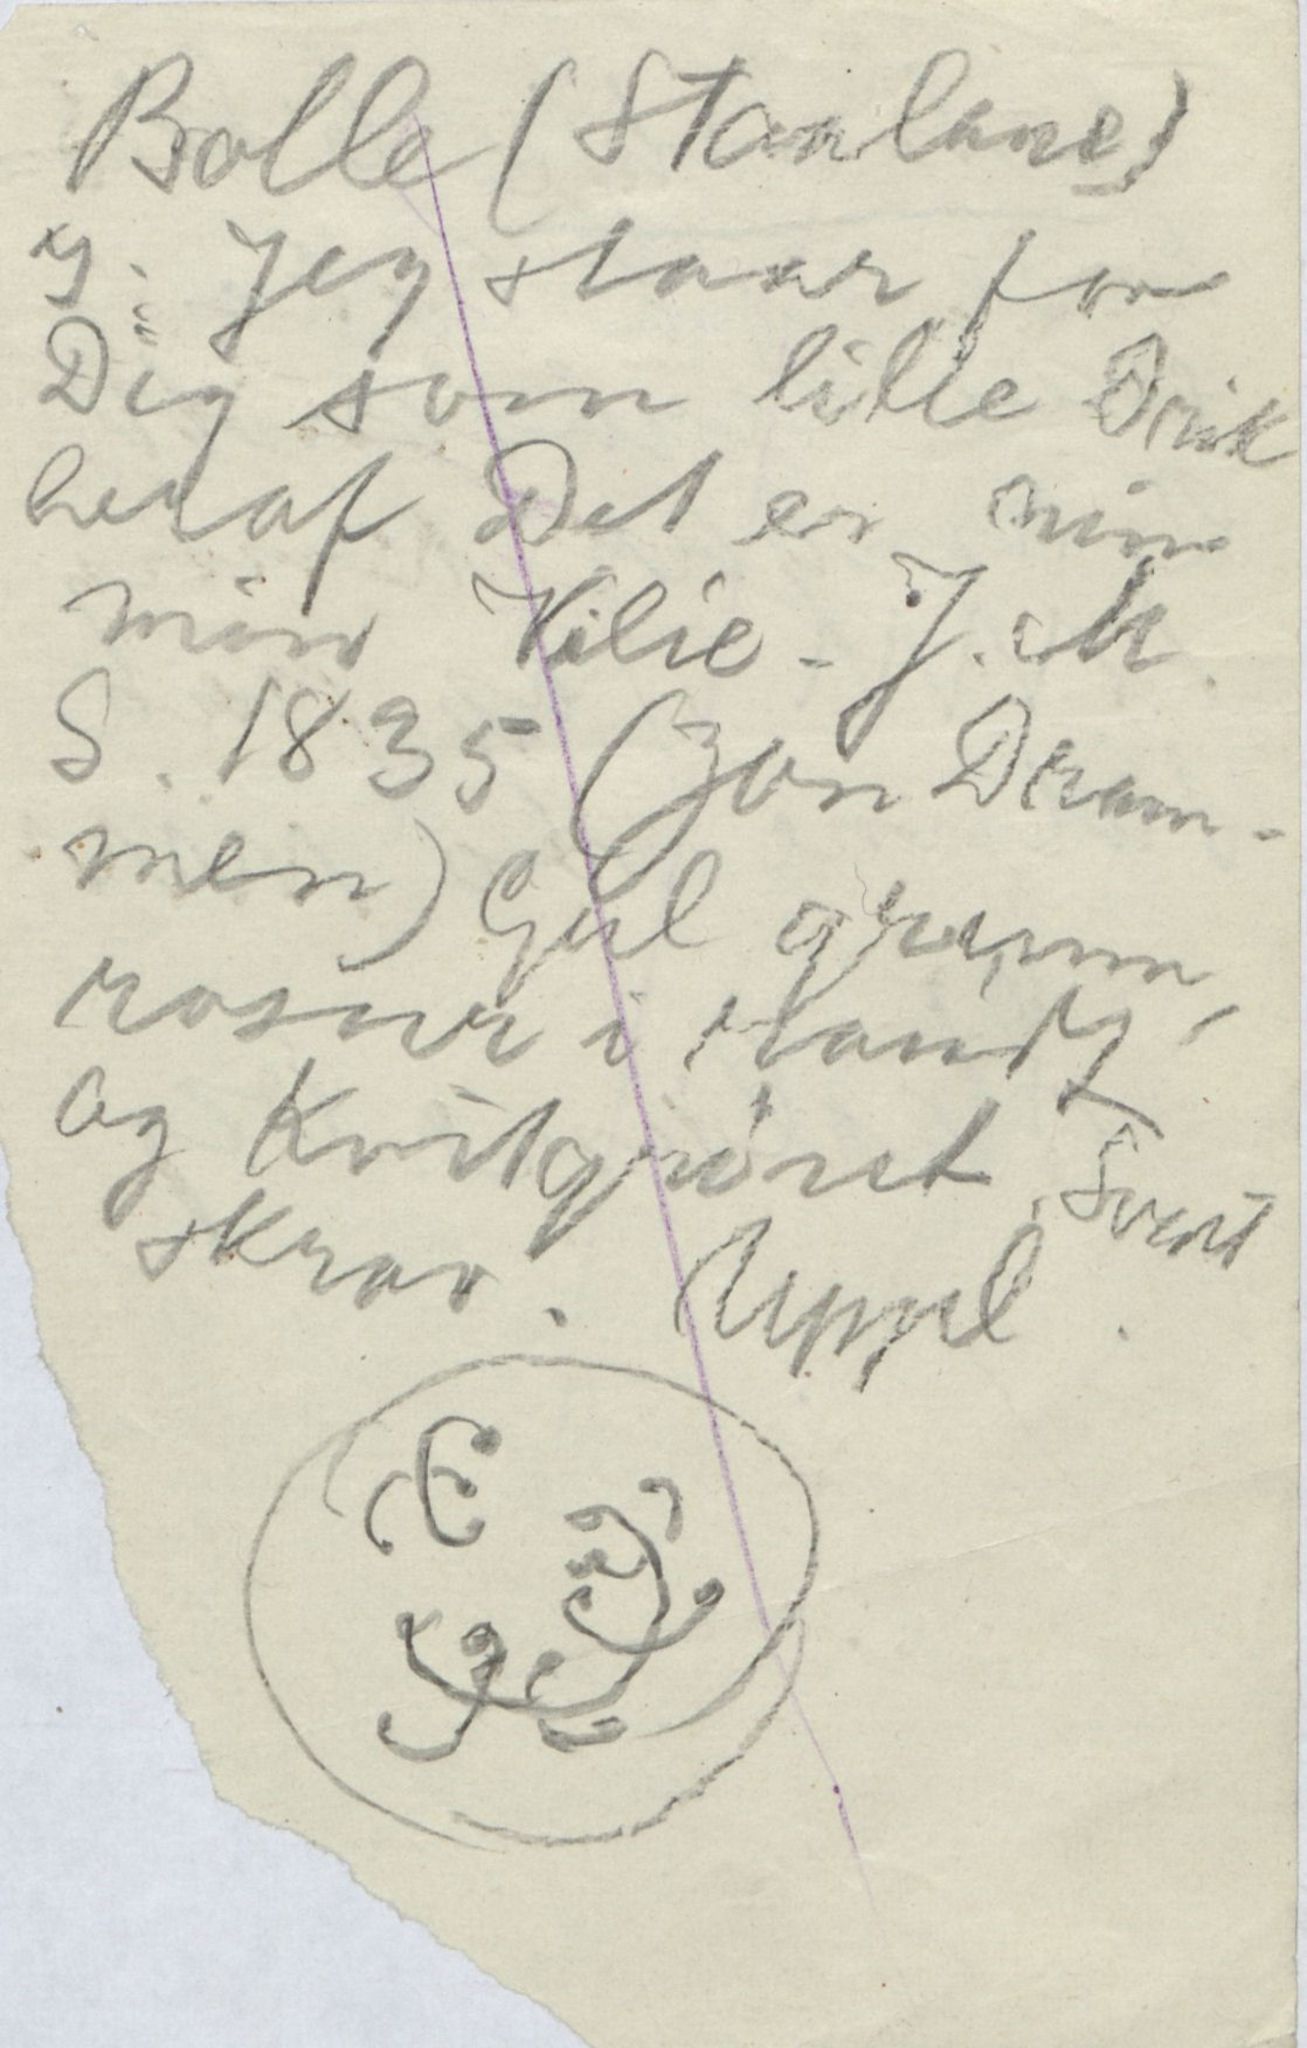 Bolle (Staalane)
y: Jeg staar for
Dig som lilie Drik
heraf Det er min
min Vilie - J. M.
S. 1835 (Jon Dram-
men) Gul grunn,
rosur i
og Kvitgrønt, Svart
skrav. Uppl.